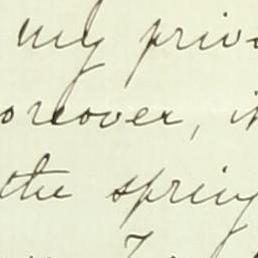 my priv
oreover, i
the spring